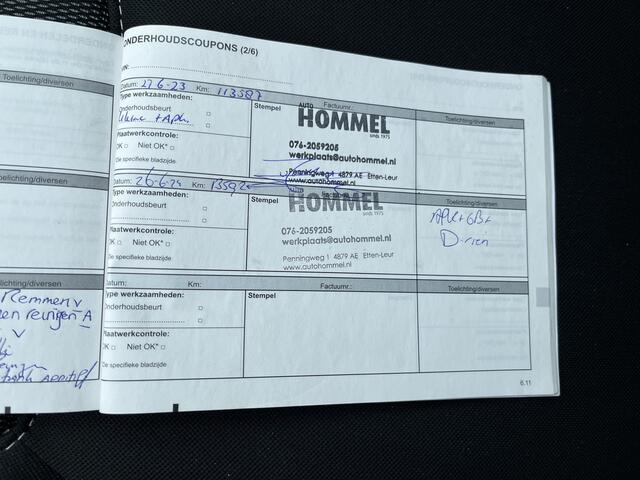 Toelichting/diversen
Toelichting/diversen
Toelichting/diversen
Remmen v
reinigen A
v
ONDERHOUDSCOUPONS (2/6)
Datum: 27-6-23 Km: 113587
Type werkzaamheden:
Onderhoudsbeurt
Kleine + Apk.
Plaatwerkcontrole:
OK Niet OK*
Zie specifieke bladzijde
Stempel
Factuurnr.:
AUTO
HOMMEL
sinds 1975
076-2059205
werkplaats@autohommel.nl
Penningweg 1 4879 AE Etten-Leur
www.autohommel.nl
Toelichting/diversen
Datum: Km:
Type werkzaamheden:
Onderhoudsbeurt
Plaatwerkcontrole:
OK Niet OK*
Zie specifieke bladzijde
Stempel
HOMMEL
sinds 1975
076-2059205
werkplaats@autohommel.nl
Penningweg 1 4879 AE Etten-Leur
www.autohommel.nl
Toelichting/diversen
APK + GB +
Datum: Km:
Type werkzaamheden:
Onderhoudsbeurt
Plaatwerkcontrole:
OK Niet OK*
Zie specifieke bladzijde
Stempel
Factuurnr.:
Toelichting/diversen
6.11